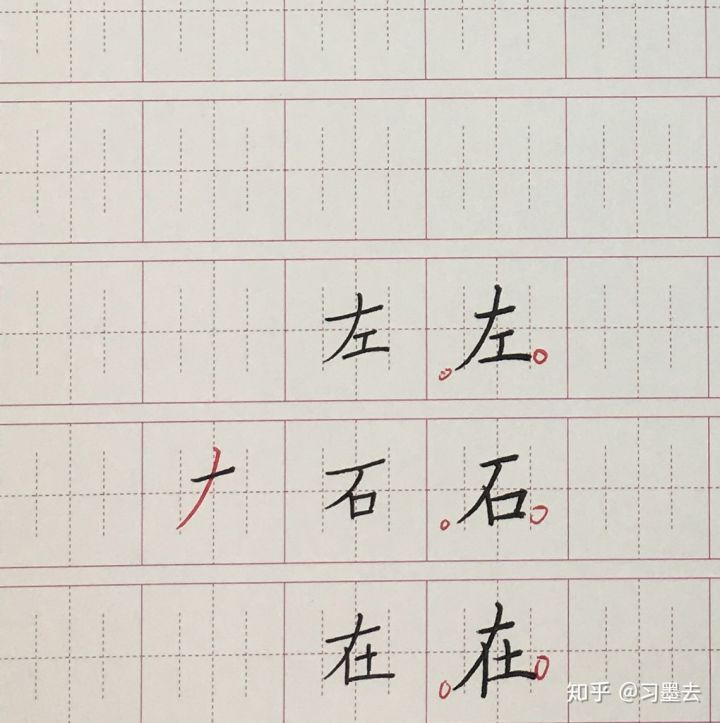 左 左
𠂇 石 石
在 在
知乎 @习墨去